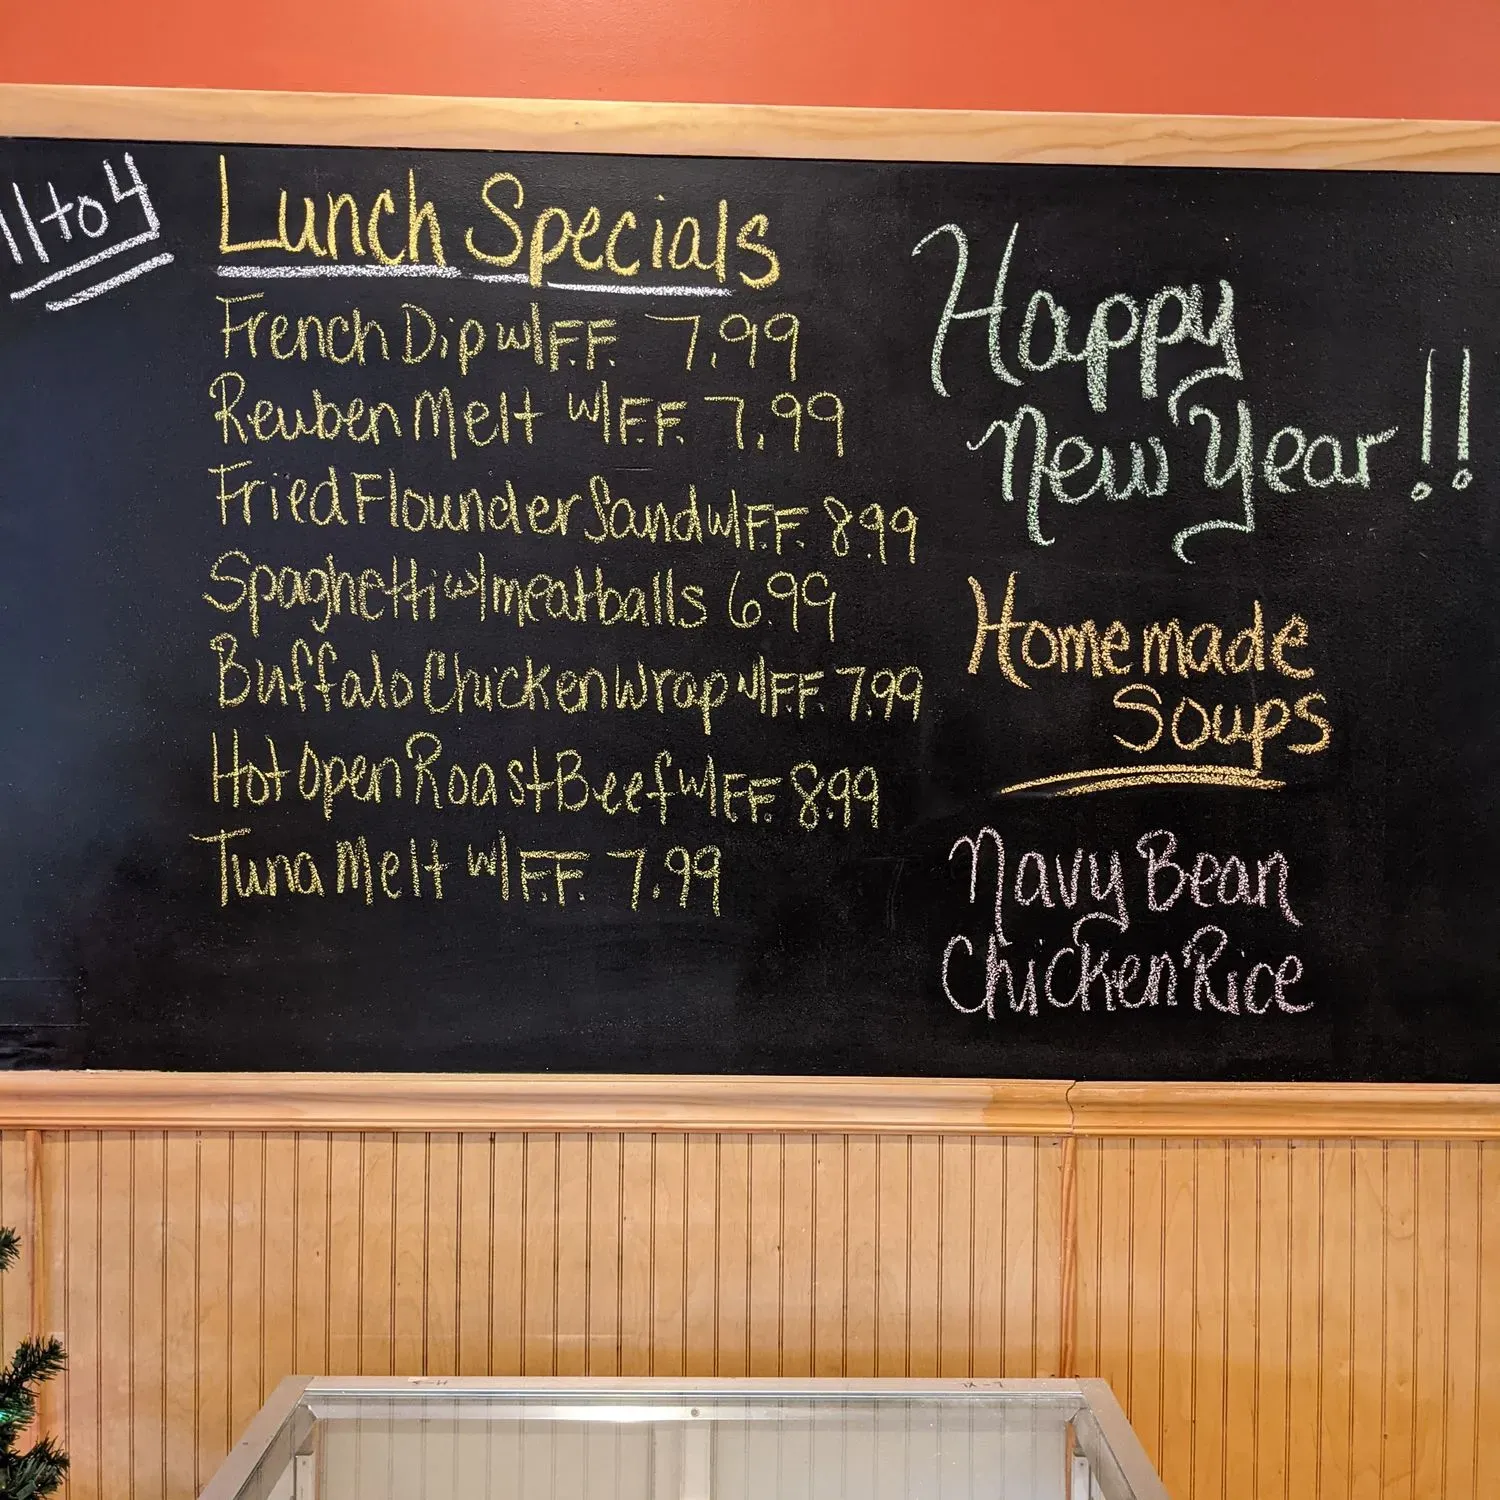 11 to 4
Lunch Specials
French Dip w/ F.F. 7.99
Reuben Melt w/ F.F. 7.99
Fried Flounder Sand w/ F.F. 8.99
Spaghetti w/ meatballs 6.99
Buffalo Chicken Wrap w/ F.F. 7.99
Hot Open Roast Beef w/ F.F. 8.99
Tuna Melt w/ F.F. 7.99
Happy
New Year!!
Homemade
Soups
Navy Bean
Chicken Rice